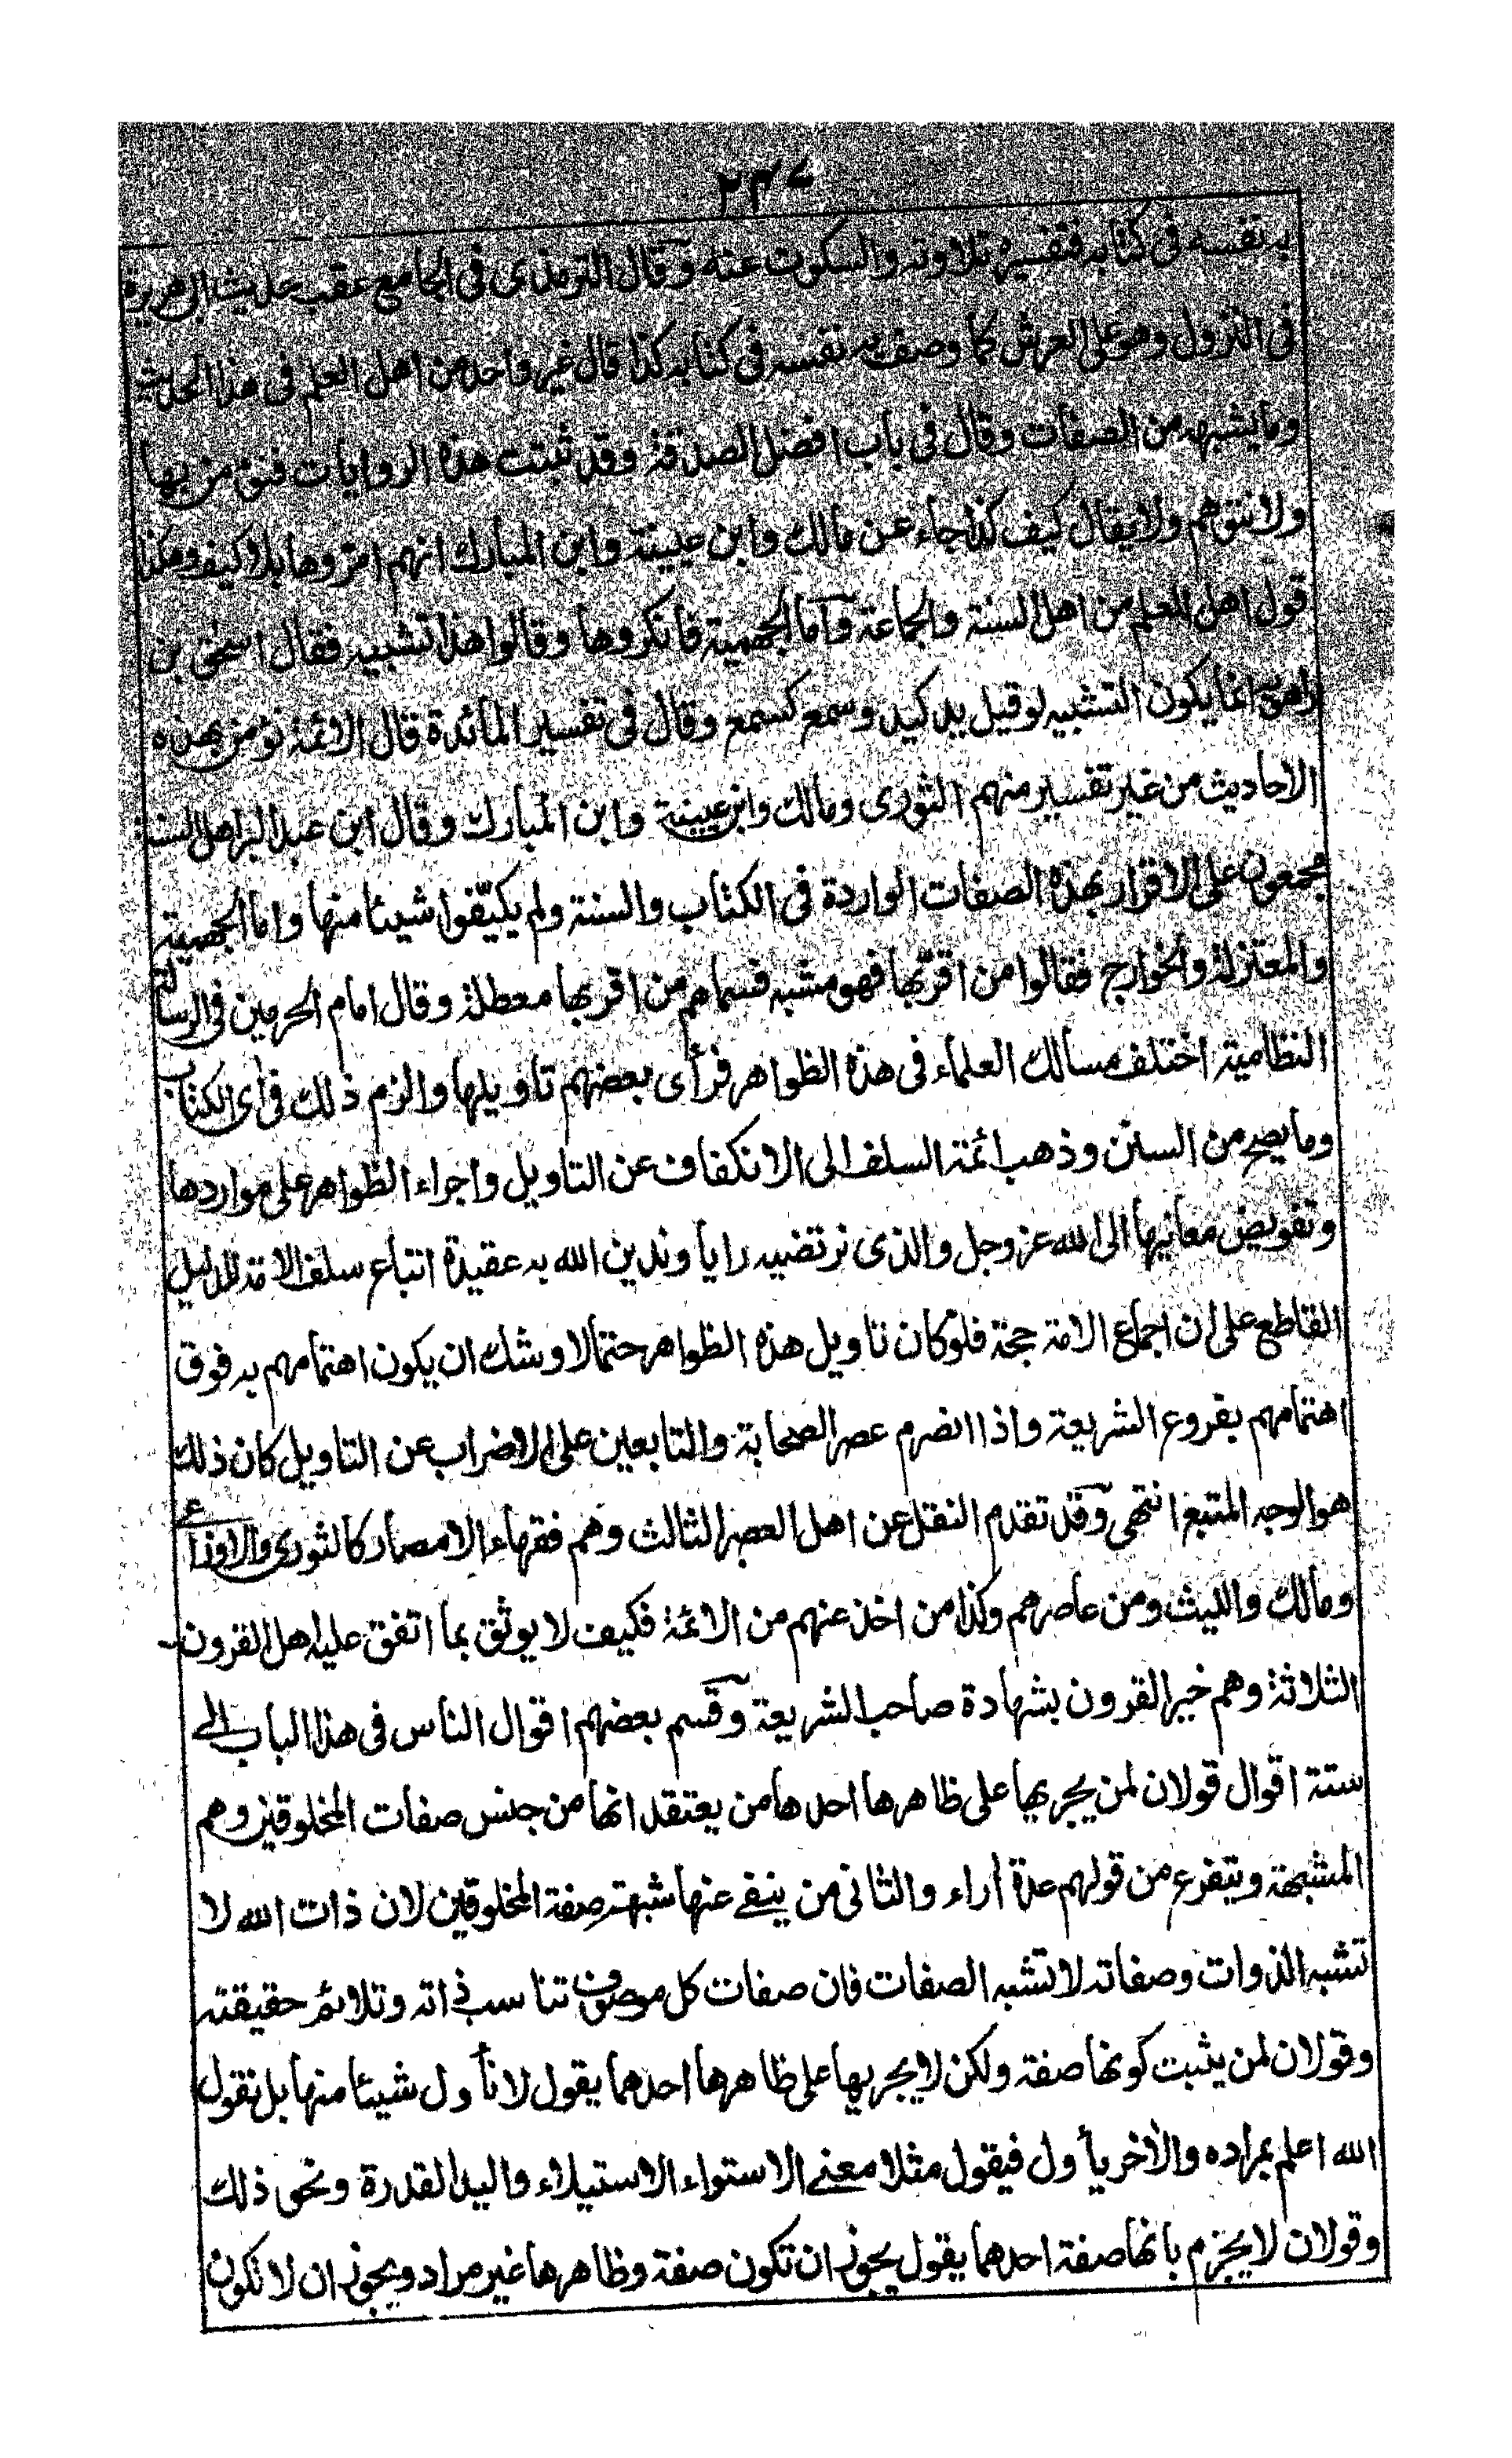 ٢٣٧
به نفسه فى كتابه فتفسيره تلاوته والسكوت عنه وقال الترمذى فى الجامع عقب حديث ابى هريرة
فى النزول وهو على العرش كما وصف به نفسه فى كتابه كذا قال غير واحد من اهل العلم فى هذا الحديث
وما يشبهه من الصفات وقال فى باب افضل الصدقة وقد ثبتت هذه الروايات فنؤمن بها
ولا نتوهم ولا يقال كيف كذا جاء عن مالك وابن عيينة وابن المبارك انهم امرّوها بلا كيف وهكذا
قول اهل العلم من اهل السنة والجماعة وأما الجهمية فانكروها وقالوا هذا تشبيه فقال اسحٰق بن
راهويه انما يكون التشبيه لو قيل يد كيد وسمع كسمع وقال فى تفسير المائدة قال الائمة نؤمن بهذه
الاحاديث من غير تفسير منهم الثورى ومالك وابن عيينة وابن المبارك وقال ابن عبد البر اهل السنة
مجمعون على الاقرار بهذه الصفات الواردة فى الكتاب والسنة ولم يكيّفوا شيئا منها واما الجهمية
والمعتزلة والخوارج فقالوا من اقرّ بها فهو مشبه فسماهم من اقر بها معطلة وقال امام الحرمين فى الرسالة
النظامية اختلف مسالك العلماء فى هذه الظواهر فرأى بعضهم تاويلها والزم ذلك فى اى الكتاب
وما يصح من السنن وذهب ائمة السلف الى الانكفاف عن التاويل واجراء الظواهر على مواردها
وتفويض معانيها الى الله عز وجل والذى نرتضيه رايا وندين الله به عقيدة اتباع سلف الامة للدليل
القاطع على ان اجماع الامة حجة فلو كان تاويل هذه الظواهر حتما لاوشك ان يكون اهتمامهم به فوق
اهتمامهم بفروع الشريعة واذا انصرم عصر الصحابة والتابعين على الاضراب عن التاويل كان ذلك
هو الوجه المتبع انتهى وقد تقدم النقل عن اهل العصر الثالث وهم فقهاء الامصار كالثورى والاوزاعى
ومالك والليث ومن عاصرهم وكذا من اخذ عنهم من الائمة فكيف لا يوثق بما اتفق عليه اهل القرون
الثلاثة وهم خير القرون بشهادة صاحب الشريعة وقسم بعضهم اقوال الناس فى هذا الباب الى
ستة اقوال قولان لمن يجريها على ظاهرها احدها من يعتقد انها من جنس صفات المخلوقين وهم
المشبهة ويتفرع من قولهم عدة أراء والثانى من ينفى عنها شبهة صفة المخلوقين لان ذات الله لا
تشبه الذوات وصفاته لا تشبه الصفات فان صفات كل موصوف تناسب ذاته وتلائم حقيقته
وقولان لمن يثبت كونها صفة ولكن لا يجريها على ظاهرها احدهما يقول لا نأول شيئا منها بل نقول
الله اعلم بمراده والأخر يأول فيقول مثلا معنى الاستواء الاستيلاء واليد القدرة ونحو ذلك
وقولان لا يجزم بانها صفة احدهما يقول يجوز ان تكون صفة وظاهرها غير مراد ويجوز ان لا تكون